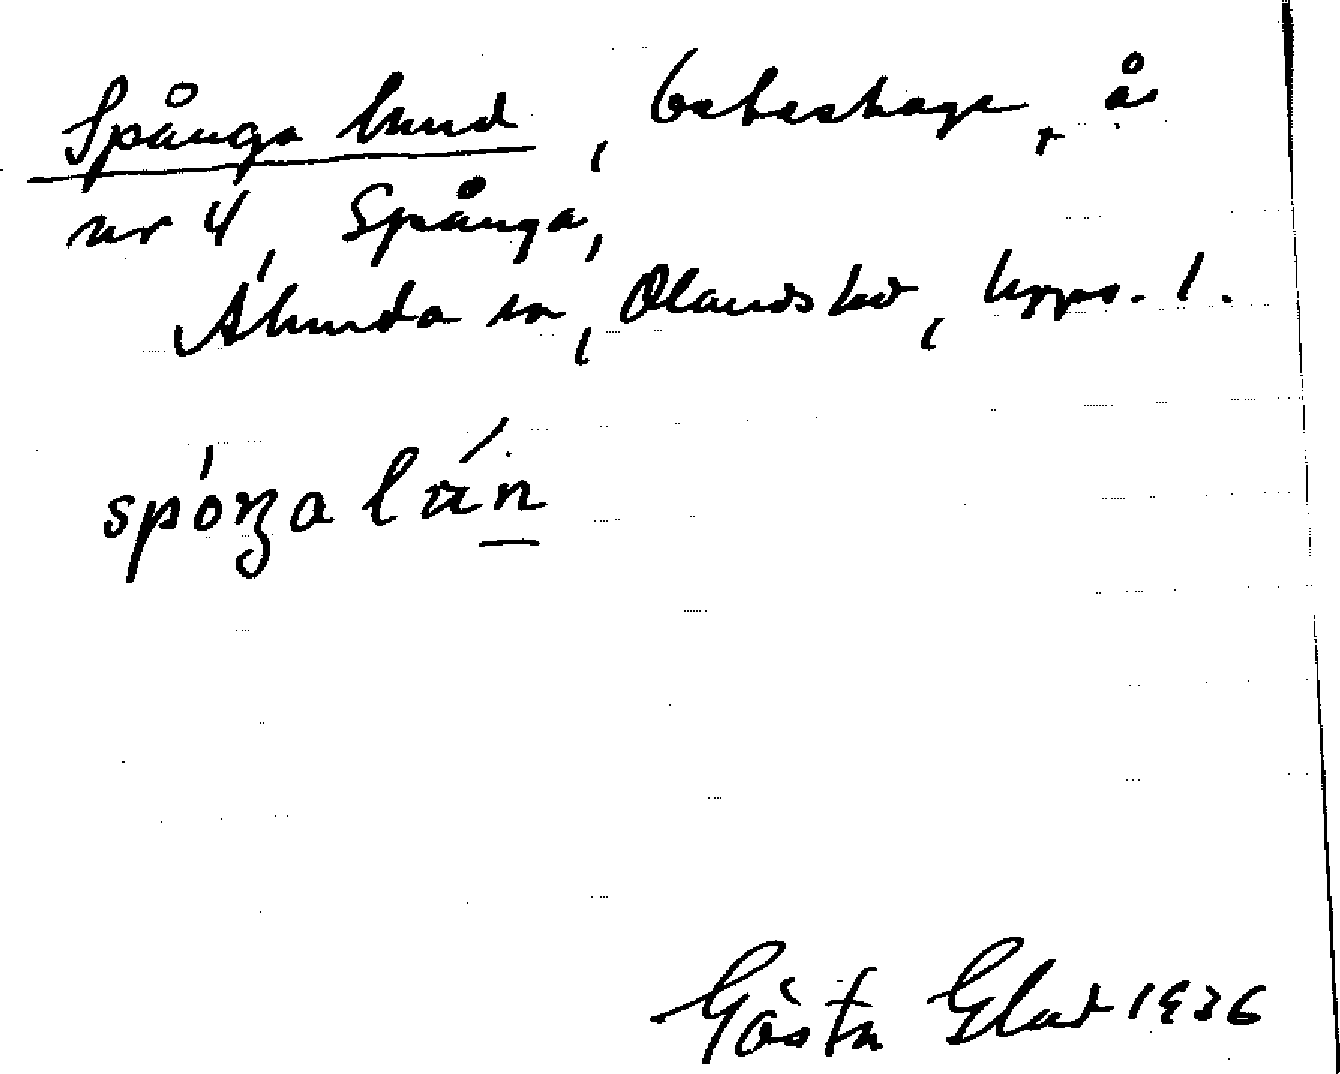 Spånga lund, beteshage, å
nr 4, Spånga,
Alunda sn, Olands hd, Upps. l.
spóŋa lun
Gösta Elat 1936